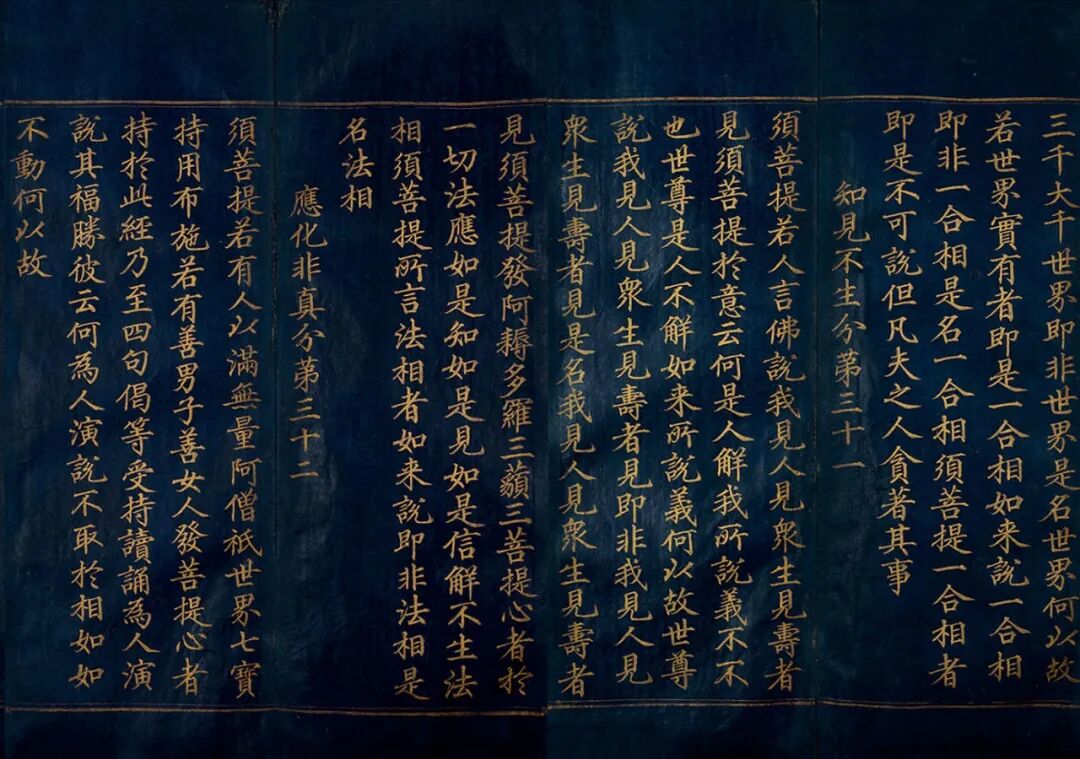 三千大千世界即非世界是名世界何以故
若世界實有者即是一合相如来說一合相
即非一合相是名一合相須菩提一合相者
即是不可說但凡夫之人貪著其事
知見不生分第三十一
須菩提若人言佛說我見人見衆生見壽者
見須菩提於意云何是人解我所說義不不
也世尊是人不解如来所說義何以故世尊
說我見人見衆生見壽者見即非我見人見
衆生見壽者見是名我見人見衆生見壽者
見須菩提發阿耨多羅三藐三菩提心者於
一切法應如是知如是見如是信解不生法
相須菩提所言法相者如来說即非法相是
名法相
應化非真分第三十二
須菩提若有人以滿無量阿僧祇世界七寶
持用布施若有善男子善女人發菩提心者
持於此經乃至四句偈等受持讀誦為人演
說其福勝彼云何為人演說不取於相如如
不動何以故